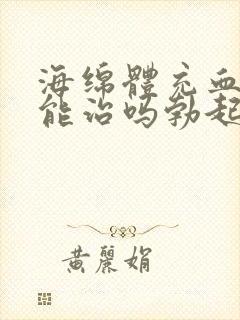 海绵體充血
能治吗勃起
黄麗娟